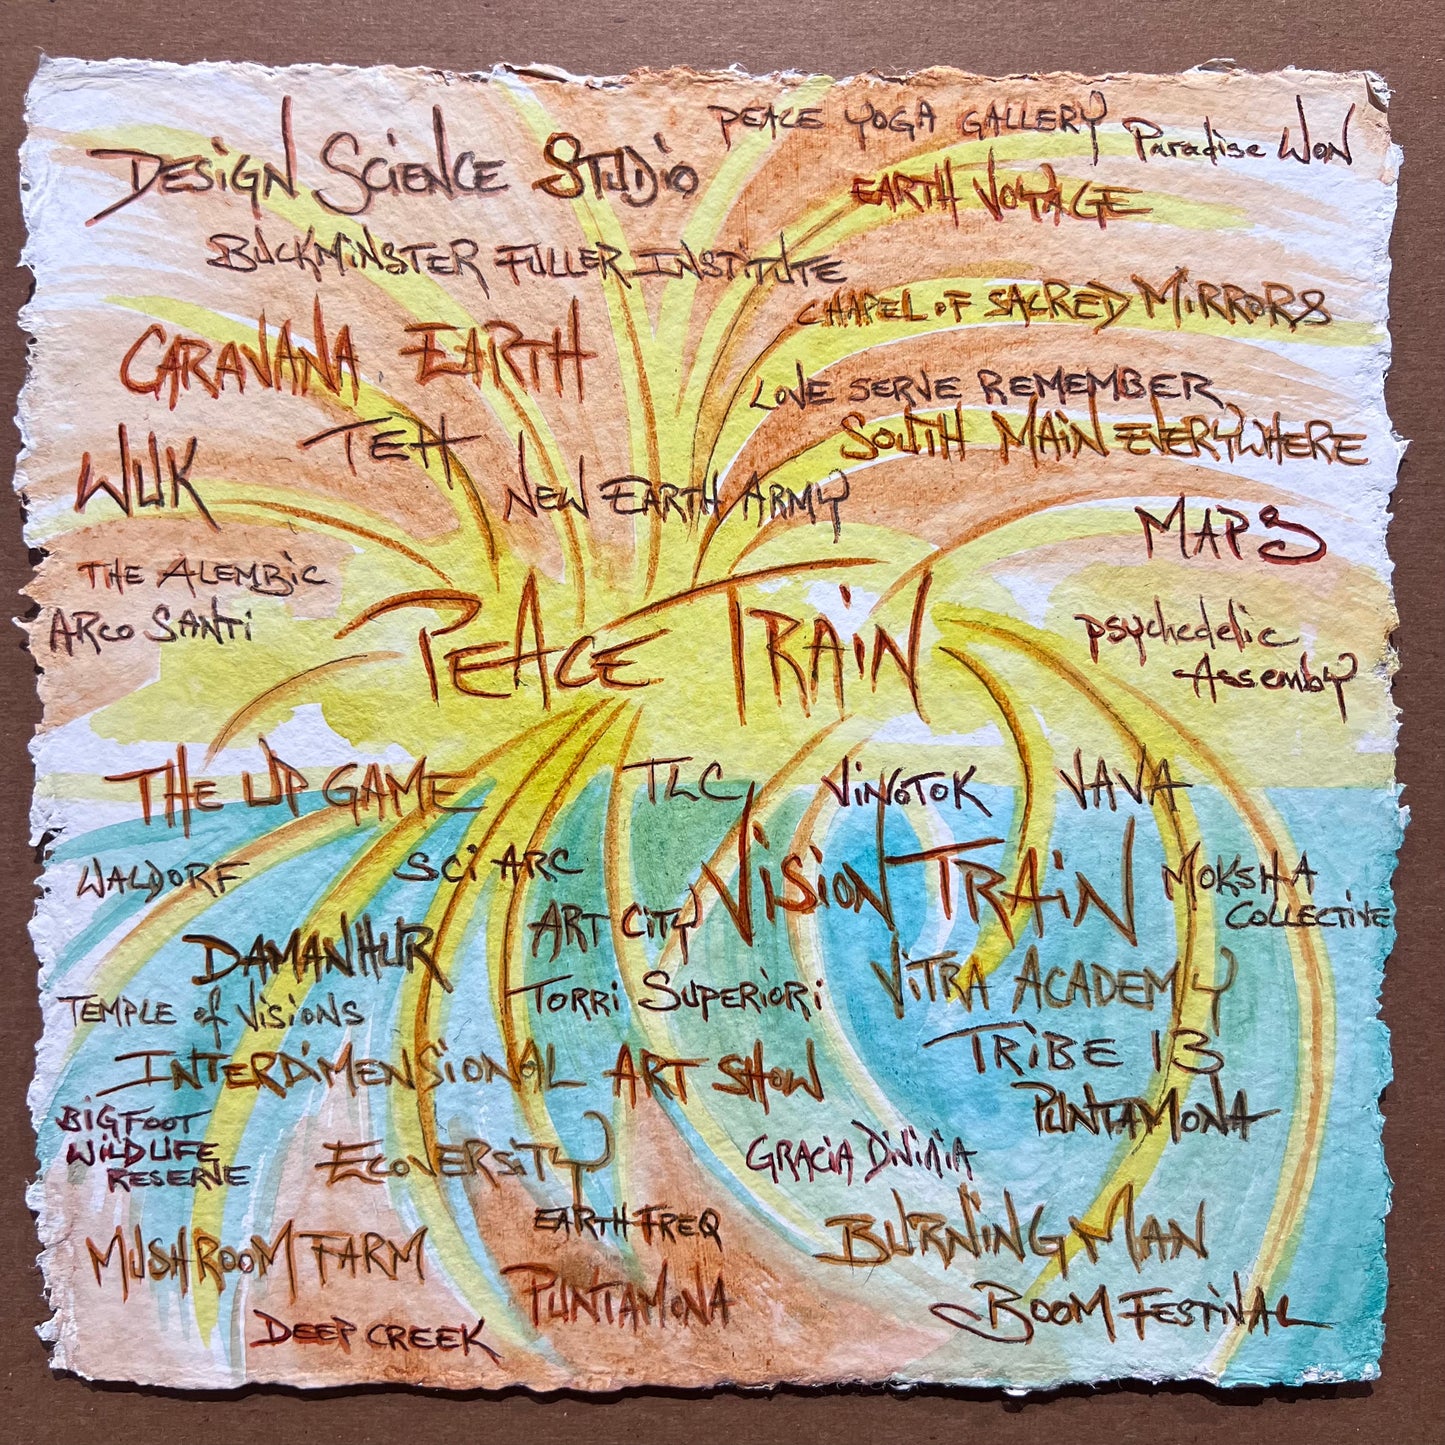 PEACE YOGA GALLERY
Paradise WON
DESIGN SCIENCE STUDIO
EARTH VOYAGE
BUCKMINSTER FULLER INSTITUTE
CHAPEL OF SACRED MIRRORS
CARAVANA EARTH
LOVE SERVE REMEMBER
SOUTH MAIN EVERYWHERE
WUK
TEH
NEW EARTH ARMY
MAPS
THE ALEMBIC
ARCO SANTI
PEACE TRAIN
psychedelic
Assembly
THE UP GAME
TLC
VINOTOK
VAVA
WALDORF
SCI ARC
VISION TRAIN
MOKSHA
COLLECTIVE
ART CITY
DAMANHUR
TEMPLE of VISIONS
TORRI SUPERIORI
VITRA ACADEMY
TRIBE 13
INTERDIMENSIONAL ART SHOW
PUNTAMONA
BIGFOOT
WILDLIFE
RESERVE
ECOVERSITY
GRACIA DIVINIA
EARTH FREQ
BURNING MAN
MUSHROOM FARM
PUNTAMONA
BOOM FESTIVAL
DEEP CREEK